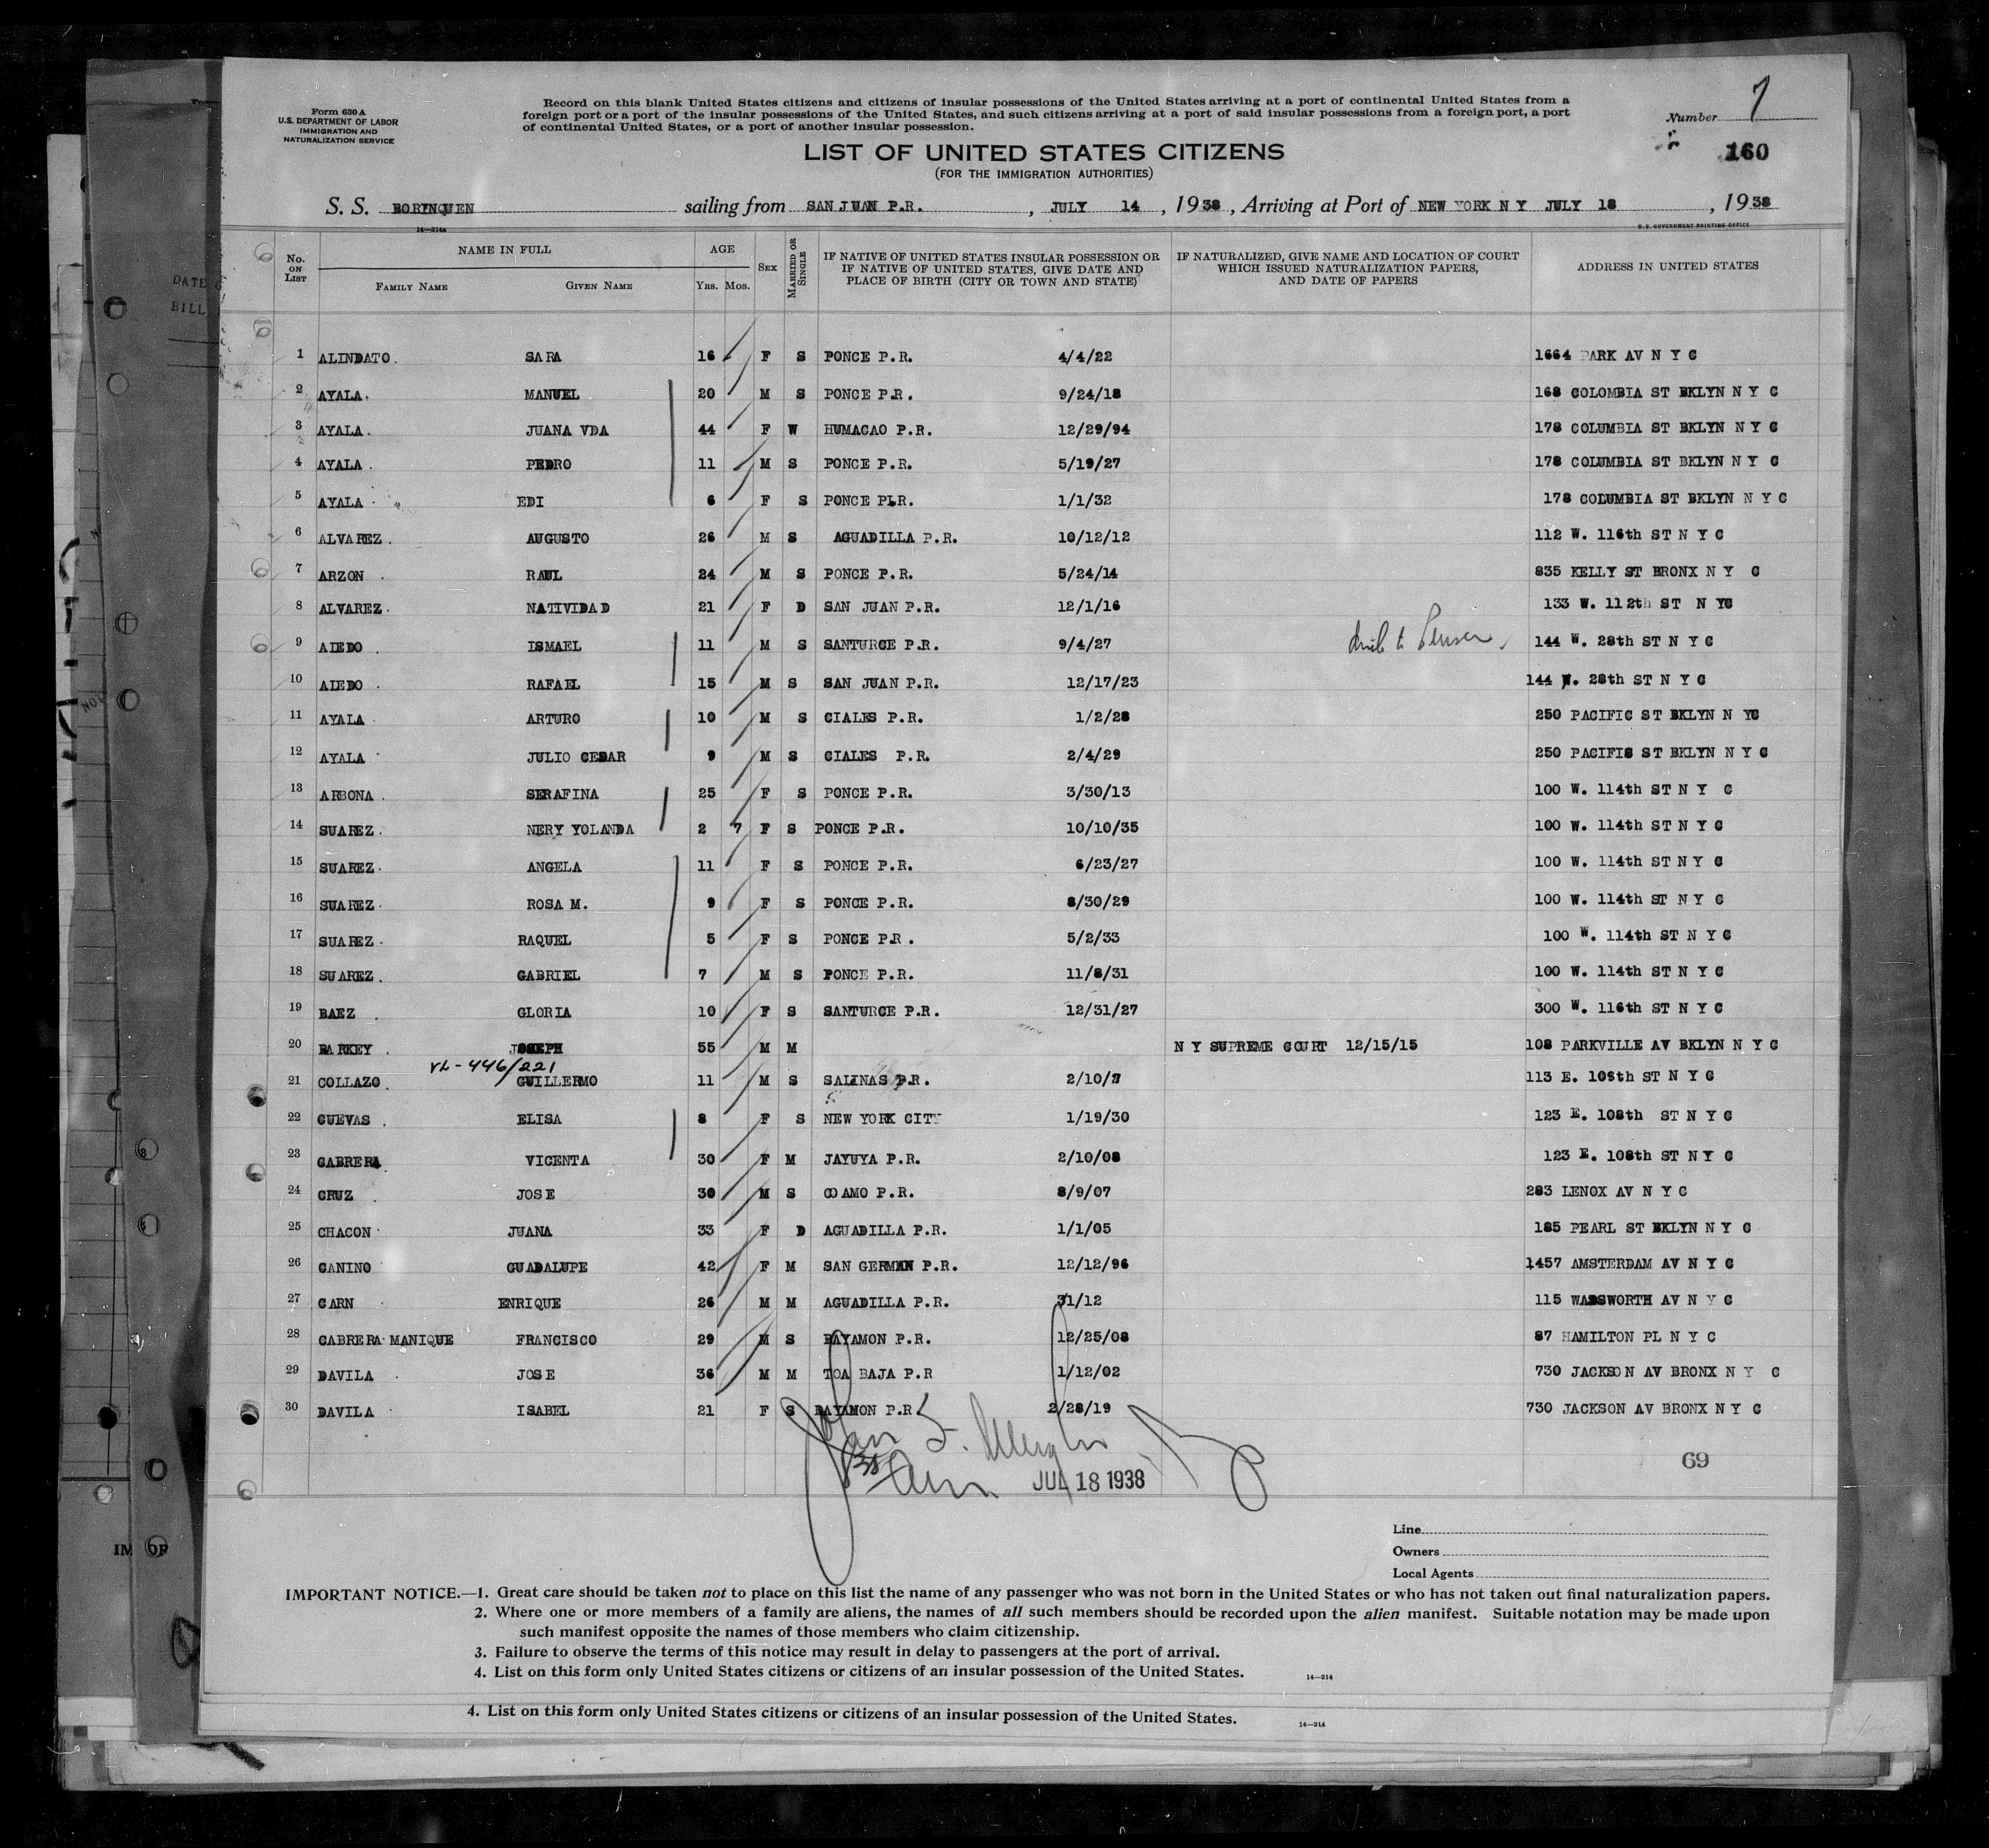 Form 630 A
U.S. DEPARTMENT OF LABOR
IMMIGRATION AND
NATURALIZATION SERVICE
Record on this blank United States citizens and citizens of insular possessions of the United States arriving at a port of continental United States from a
foreign port or a port of the insular possessions of the United States, and such citizens arriving at a port of said insular possessions from a foreign port, a port
of continental United States, or a port of another insular possession.
Number 7
160
LIST OF UNITED STATES CITIZENS
(FOR THE IMMIGRATION AUTHORITIES)
S. S. BORINQUEN sailing from SAN JUAN P.R. , JULY 14 , 1938 , Arriving at Port of NEW YORK N Y JULY 18 , 1938
14—214a
U. S. GOVERNMENT PRINTING OFFICE
No. ON LIST NAME IN FULL AGE SEX MARRIED OR SINGLE IF NATIVE OF UNITED STATES INSULAR POSSESSION OR IF NATIVE OF UNITED STATES, GIVE DATE AND PLACE OF BIRTH (CITY OR TOWN AND STATE) IF NATURALIZED, GIVE NAME AND LOCATION OF COURT WHICH ISSUED NATURALIZATION PAPERS, AND DATE OF PAPERS ADDRESS IN UNITED STATES
FAMILY NAME GIVEN NAME YRS. MOS.
1 ALINDATO. SARA 16 F S PONCE P.R. 4/4/22 1664 PARK AV N Y C
2 AYALA. MANUEL 20 M S PONCE P.R. 9/24/18 168 COLOMBIA ST BKLYN N Y C
3 AYALA. JUANA VDA 44 F W HUMACAO P.R. 12/29/94 178 COLUMBIA ST BKLYN N Y C
4 AYALA. PEDRO 11 M S PONCE P.R. 5/19/27 178 COLUMBIA ST BKLYN N Y C
5 AYALA. EDI 6 F S PONCE P.R. 1/1/32 178 COLUMBIA ST BKLYN N Y C
6 ALVAREZ. AUGUSTO 26 M S AGUADILLA P.R. 10/12/12 112 W. 116th ST N Y C
7 ARZON. RAUL 24 M S PONCE P.R. 5/24/14 835 KELLY ST BRONX N Y C
8 ALVAREZ. NATIVIDAD 21 F D SAN JUAN P.R. 12/1/16 133 W. 112th ST N YC
9 AIEDO. ISMAEL 11 M S SANTURCE P.R. 9/4/27 144 W. 28th ST N Y C
10 AIEDO. RAFAEL 15 M S SAN JUAN P.R. 12/17/23 144 W. 28th ST N Y C
11 AYALA ARTURO 10 M S CIALES P.R. 1/2/28 250 PACIFIC ST BKLYN N YC
12 AYALA JULIO CESAR 9 M S CIALES P.R. 2/4/29 250 PACIFIC ST BKLYN N Y C
13 ARBONA. SERAFINA 25 F S PONCE P.R. 3/30/13 100 W. 114th ST N Y C
14 SUAREZ. NERY YOLANDA 2 7 F S PONCE P.R. 10/10/35 100 W. 114th ST N Y C
15 SUAREZ. ANGELA 11 F S PONCE P.R. 6/23/27 100 W. 114th ST N Y C
16 SUAREZ. ROSA M. 9 F S PONCE P.R. 8/30/29 100 W. 114th ST N Y C
17 SUAREZ. RAQUEL 5 F S PONCE P.R. 5/2/33 100 W. 114th ST N Y C
18 SUAREZ. GABRIEL 7 M S PONCE P.R. 11/8/31 100 W. 114th ST N Y C
19 BAEZ. GLORIA 10 F S SANTURCE P.R. 12/31/27 300 W. 116th ST N Y C
20 BARKEY. JOSEPH 55 M M N Y SUPREME COURT 12/15/15 108 PARKVILLE AV BKLYN N Y C
VL-446/221
21 COLLAZO. GUILLERMO 11 M S SALINAS P.R. 2/10/ 113 E. 109th ST N Y C
22 CUEVAS. ELISA 8 F S NEW YORK CITY 1/19/30 123 E. 108th ST N Y C
23 CABRERA VICENTA 30 F M JAYUYA P.R. 2/10/08 123 E. 108th ST N Y C
24 CRUZ. JOSE 30 M S COAMO P.R. 8/9/07 283 LENOX AV N Y C
25 CHACON JUANA 33 F D AGUADILLA P.R. 1/1/05 185 PEARL ST BKLYN N Y C
26 CANINO GUADALUPE 42 F M SAN GERMAN P.R. 12/12/96 1457 AMSTERDAM AV N Y C
27 CARN ENRIQUE 26 M M AGUADILLA P.R. 31/12 115 WADSWORTH AV N Y C
28 CABRERA MANIQUE FRANCISCO 29 M S BAYAMON P.R. 12/25/08 87 HAMILTON PL N Y C
29 DAVILA. JOSE 36 M M TOA BAJA P.R 1/12/02 730 JACKSON AV BRONX N Y C
30 DAVILA ISABEL 21 F S BAYAMON P.R 2/28/19 730 JACKSON AV BRONX N Y C
69
JUL 18 1938
Line
Owners
Local Agents
IMPORTANT NOTICE.—1. Great care should be taken not to place on this list the name of any passenger who was not born in the United States or who has not taken out final naturalization papers.
2. Where one or more members of a family are aliens, the names of all such members should be recorded upon the alien manifest. Suitable notation may be made upon
such manifest opposite the names of those members who claim citizenship.
3. Failure to observe the terms of this notice may result in delay to passengers at the port of arrival.
4. List on this form only United States citizens or citizens of an insular possession of the United States.
14—214
4. List on this form only United States citizens or citizens of an insular possession of the United States.
14—214